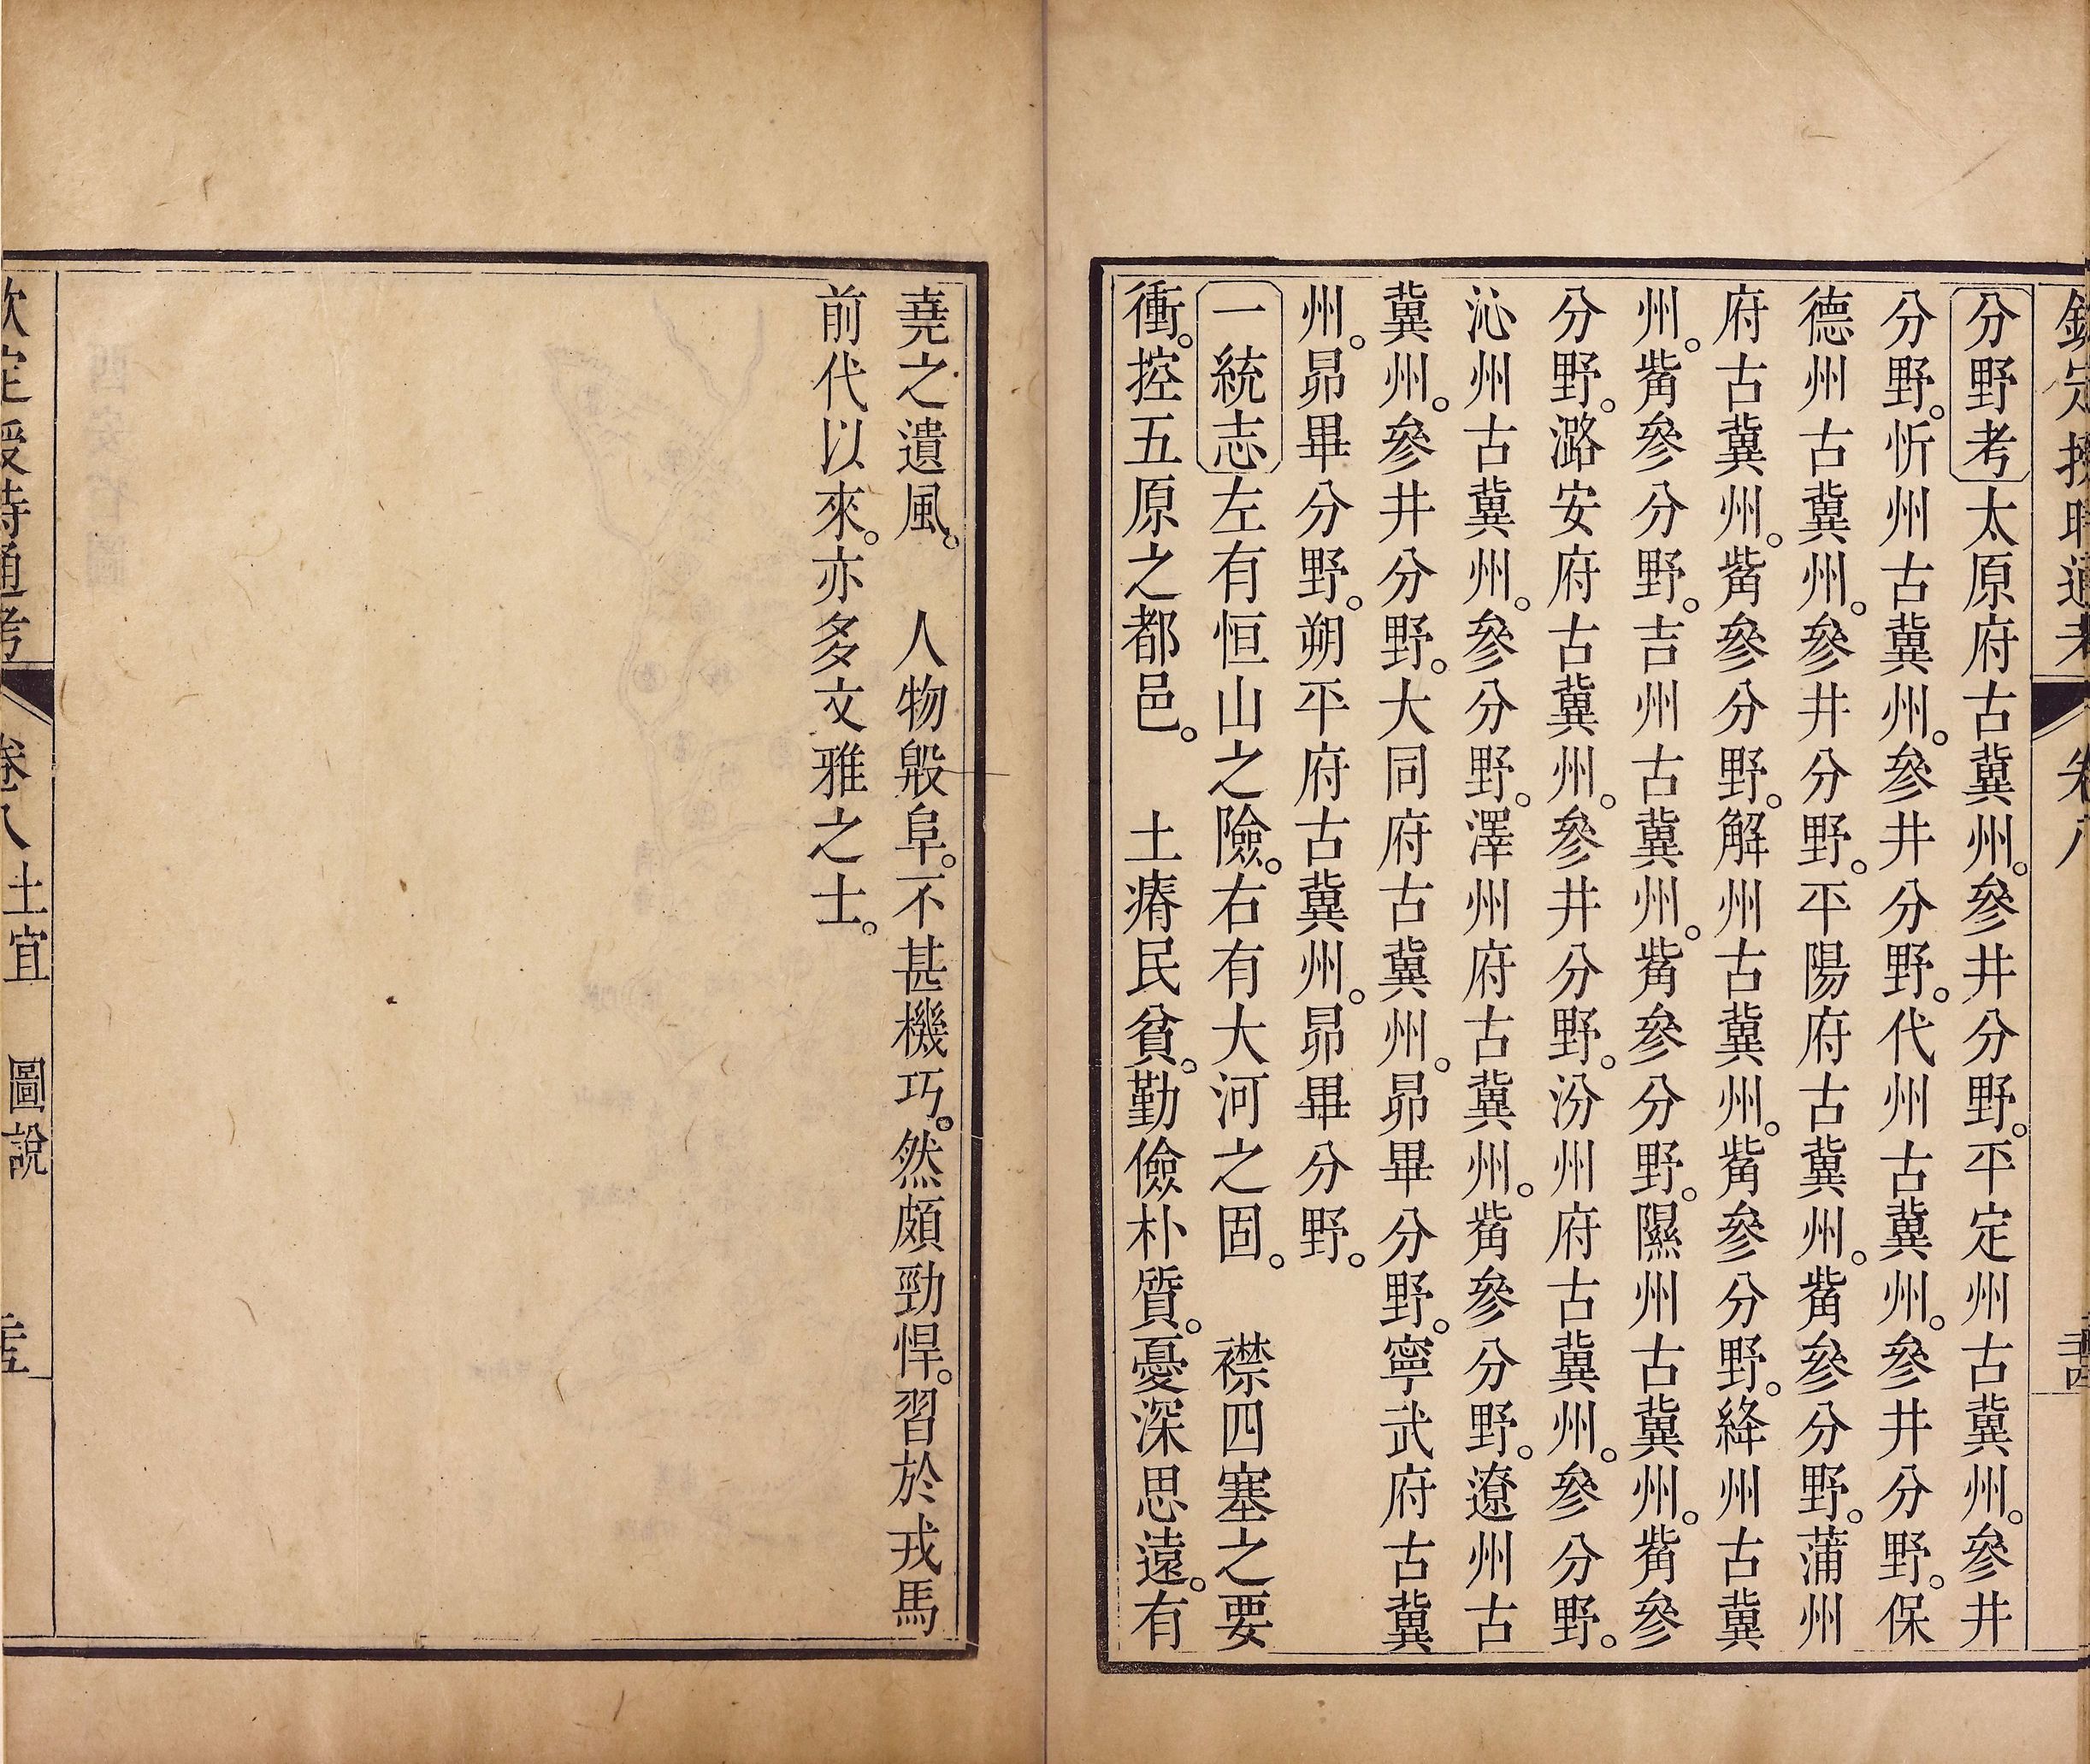 欽定授時通考　卷八
分野考太原府古冀州。參井分野。平定州古冀州。參井
分野。忻州古冀州。參井分野。代州古冀州。參井分野。保
德州古冀州。參井分野。平陽府古冀州。觜參分野。蒲州
府古冀州。觜參分野。解州古冀州。觜參分野。絳州古冀
州。觜參分野。吉州古冀州。觜參分野。隰州古冀州。觜參
分野。潞安府古冀州。參井分野。汾州府古冀州。參分野。
沁州古冀州。參分野。澤州府古冀州。觜參分野。遼州古
冀州。參井分野。大同府古冀州。昴畢分野。寧武府古冀
州。昴畢分野。朔平府古冀州。昴畢分野。
一統志左有恒山之險。右有大河之固。　襟四塞之要
衝。控五原之都邑。　土瘠民貧。勤儉朴質。憂深思遠。有
堯之遺風。　人物殷阜。不甚機巧。然頗勁悍。習於戎馬
前代以來。亦多文雅之士。
欽定授時通考　卷八土宜　圖說